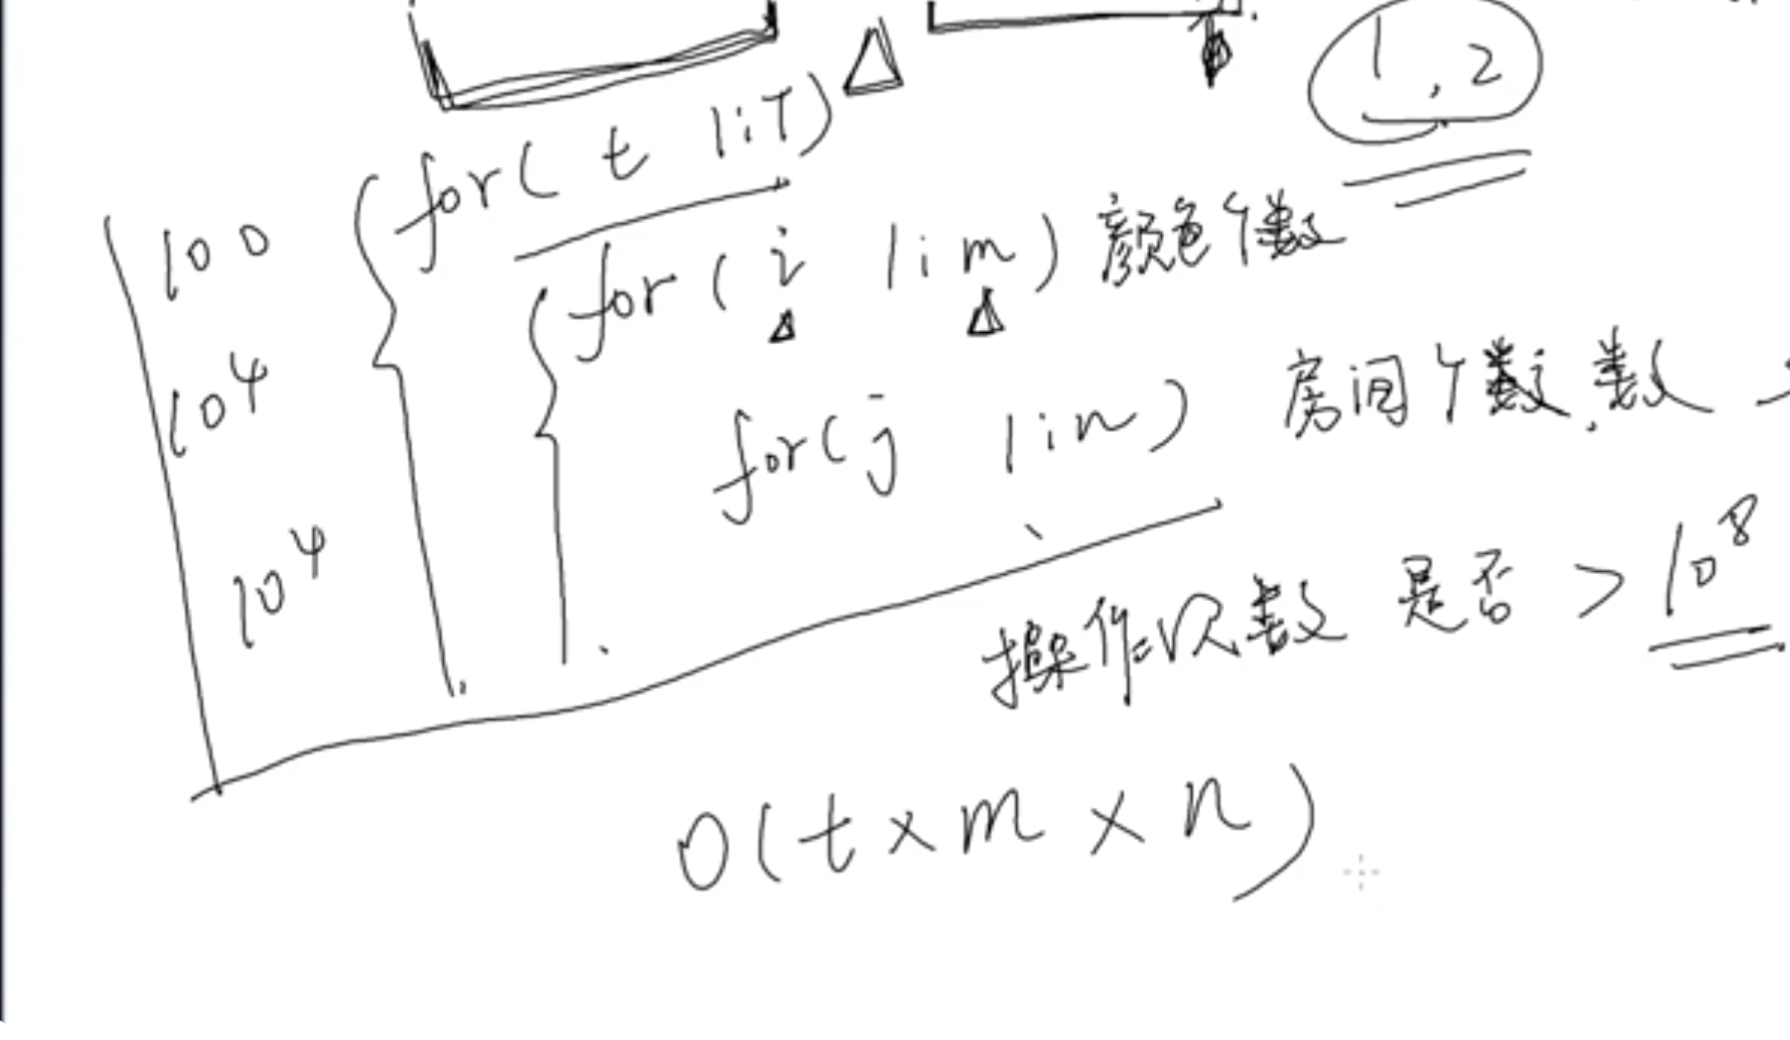 1,2
for( t 1:T)
100
for( i 1:m) 颜色个数
10^4
for(j 1:n) 房间个数,数
10^4
操作次数 是否 > 10^8
O(t×m×n)